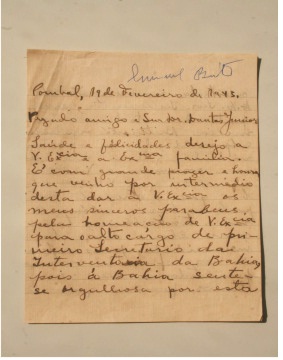 Pombal, 19 de Fevereiro de 1943.
Prezado amigo e Snr. Dr. Dantas Junior
Saúde e felicidades desejo a
V. Excia e a Exma familiar.
É com grande prazer e honra
que venho por intermedio
desta dar a V. Excia os
meus sinceros parabens
pela nomeação de V. Excia
para o alto cargo de pri-
meiro Secretario da
Interventoria da Bahia,
pois á Bahia sente-
se orgulhosa por esta